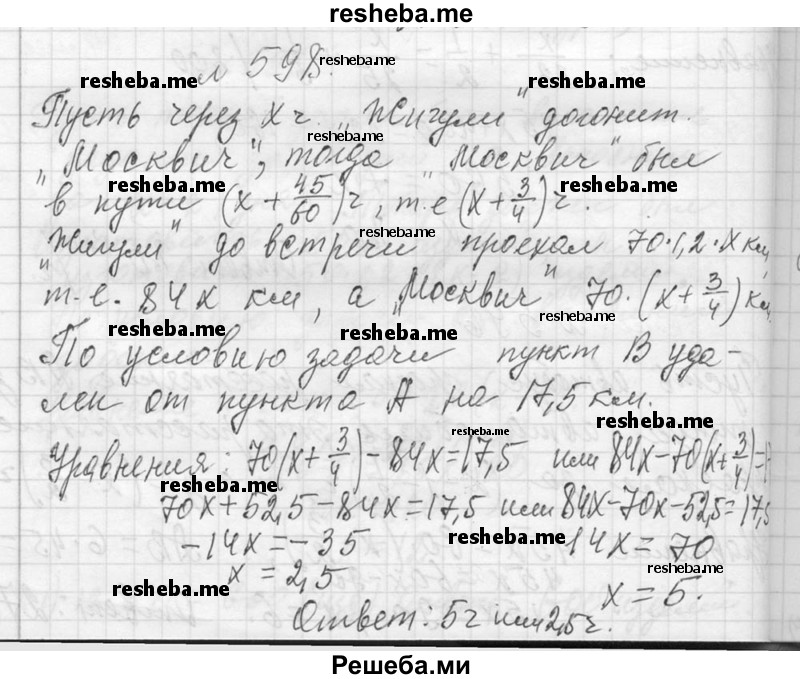 resheba.me
№ 598. resheba.me
resheba.me resheba.me
Пусть через x ч. „Жигули" догонит.
resheba.me
„Москвич", тогда „Москвич" был
resheba.me resheba.me
в пути (x + 45/60) ч, т.е (x + 3/4) ч.
resheba.me
„Жигули" до встречи проехал 70·1,2·x км,
т.е. 84x км, а „Москвич" 70·(x + 3/4) км.
resheba.me
resheba.me resheba.me
По условию задачи пункт В уда-
лен от пункта А на 17,5 км.
resheba.me resheba.me
Уравнения: 70(x + 3/4) - 84x = 17,5 или 84x - 70(x + 3/4) =
resheba.me
70x + 52,5 - 84x = 17,5 или 84x - 70x - 52,5 = 17,5
-14x = -35 resheba.me 14x = 70
resheba.me
x = 2,5 x = 5.
resheba.me
Ответ: 5 ч или 2,5 ч.
Решеба.ми